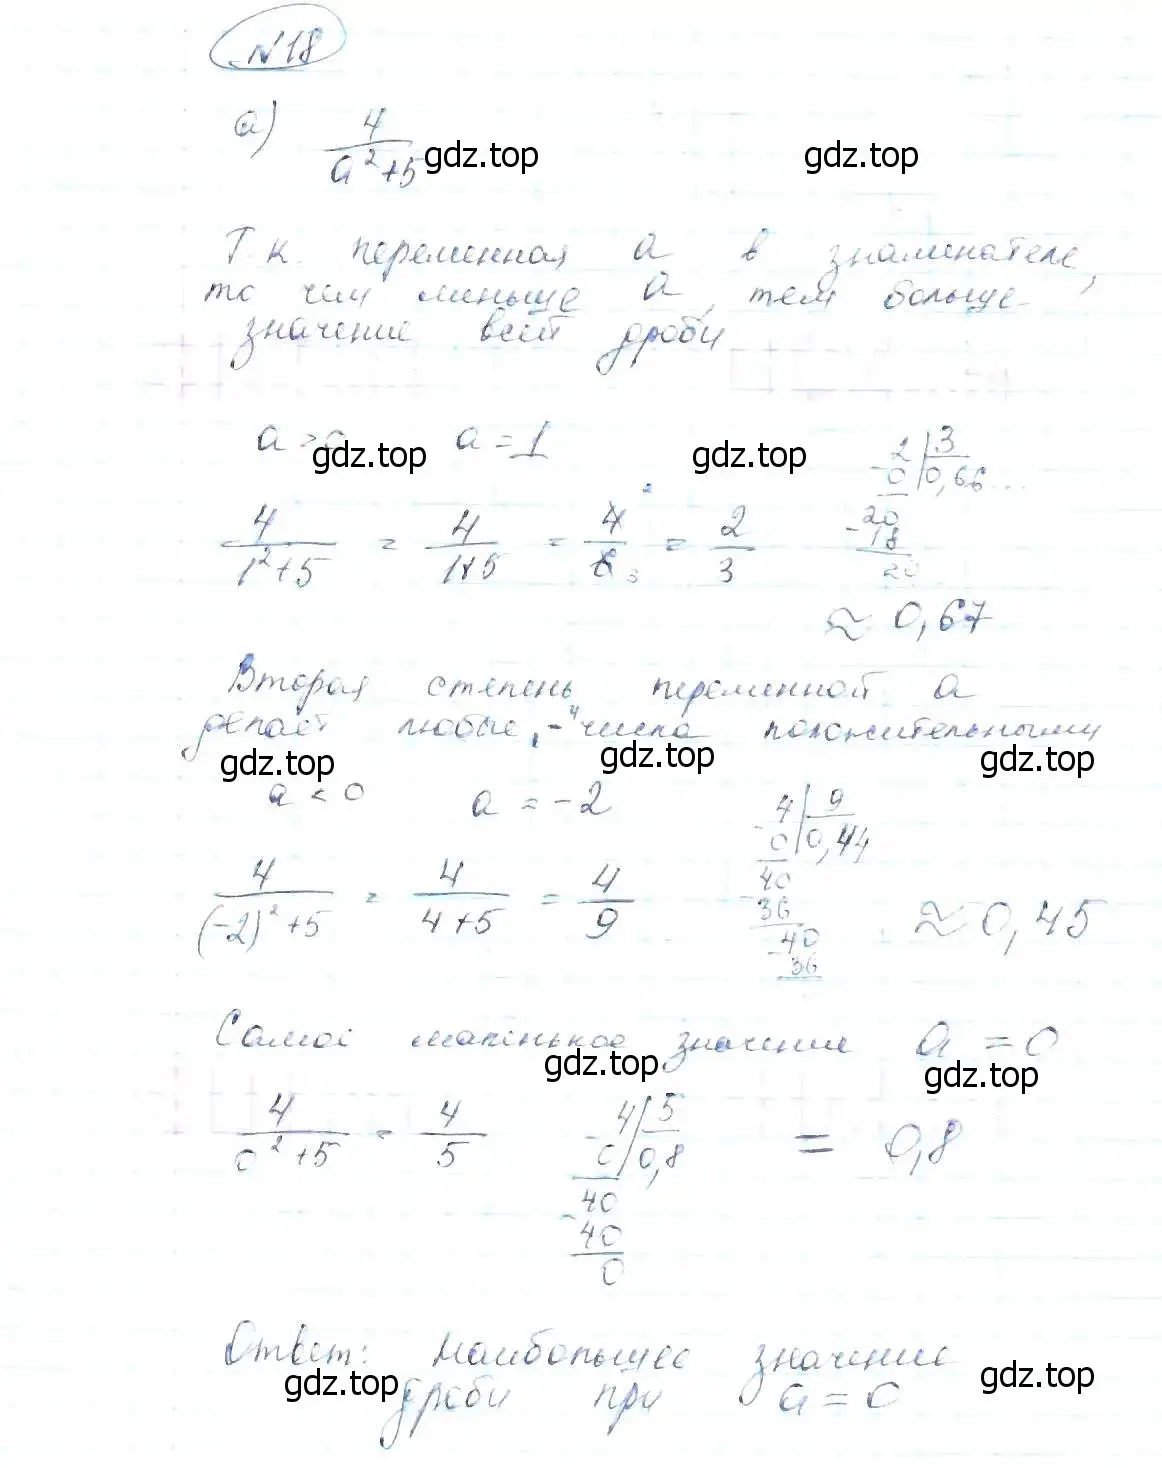 №18
а) 4/(a²+5) gdz.top gdz.top
Т.к. переменная a в знаминателе,
то чем меньше a, тем больше
значение всей дроби
a > gdz.top a = 1 gdz.top 2 | 3
- 0 | 0,66...
20
- 18
20
4/(1²+5) = 4/(1+5) = 4/6 = 2/3
2 3
≈ 0,67
Вторая степень переменной a
делает любые числа положительными
gdz.top gdz.top gdz.top
a < 0 a = -2 4 | 9
- 0 | 0,44
40
- 36
40
- 36
4/((-2)²+5) = 4/(4+5) = 4/9 ≈ 0,45
Самое маленькое значение a = 0
gdz.top gdz.top
4/(0²+5) = 4/5 4 | 5 = 0,8
- 0 | 0,8
40
- 40
0
Ответ: наибольшее значение
gdz.top дроби при a = 0 gdz.top